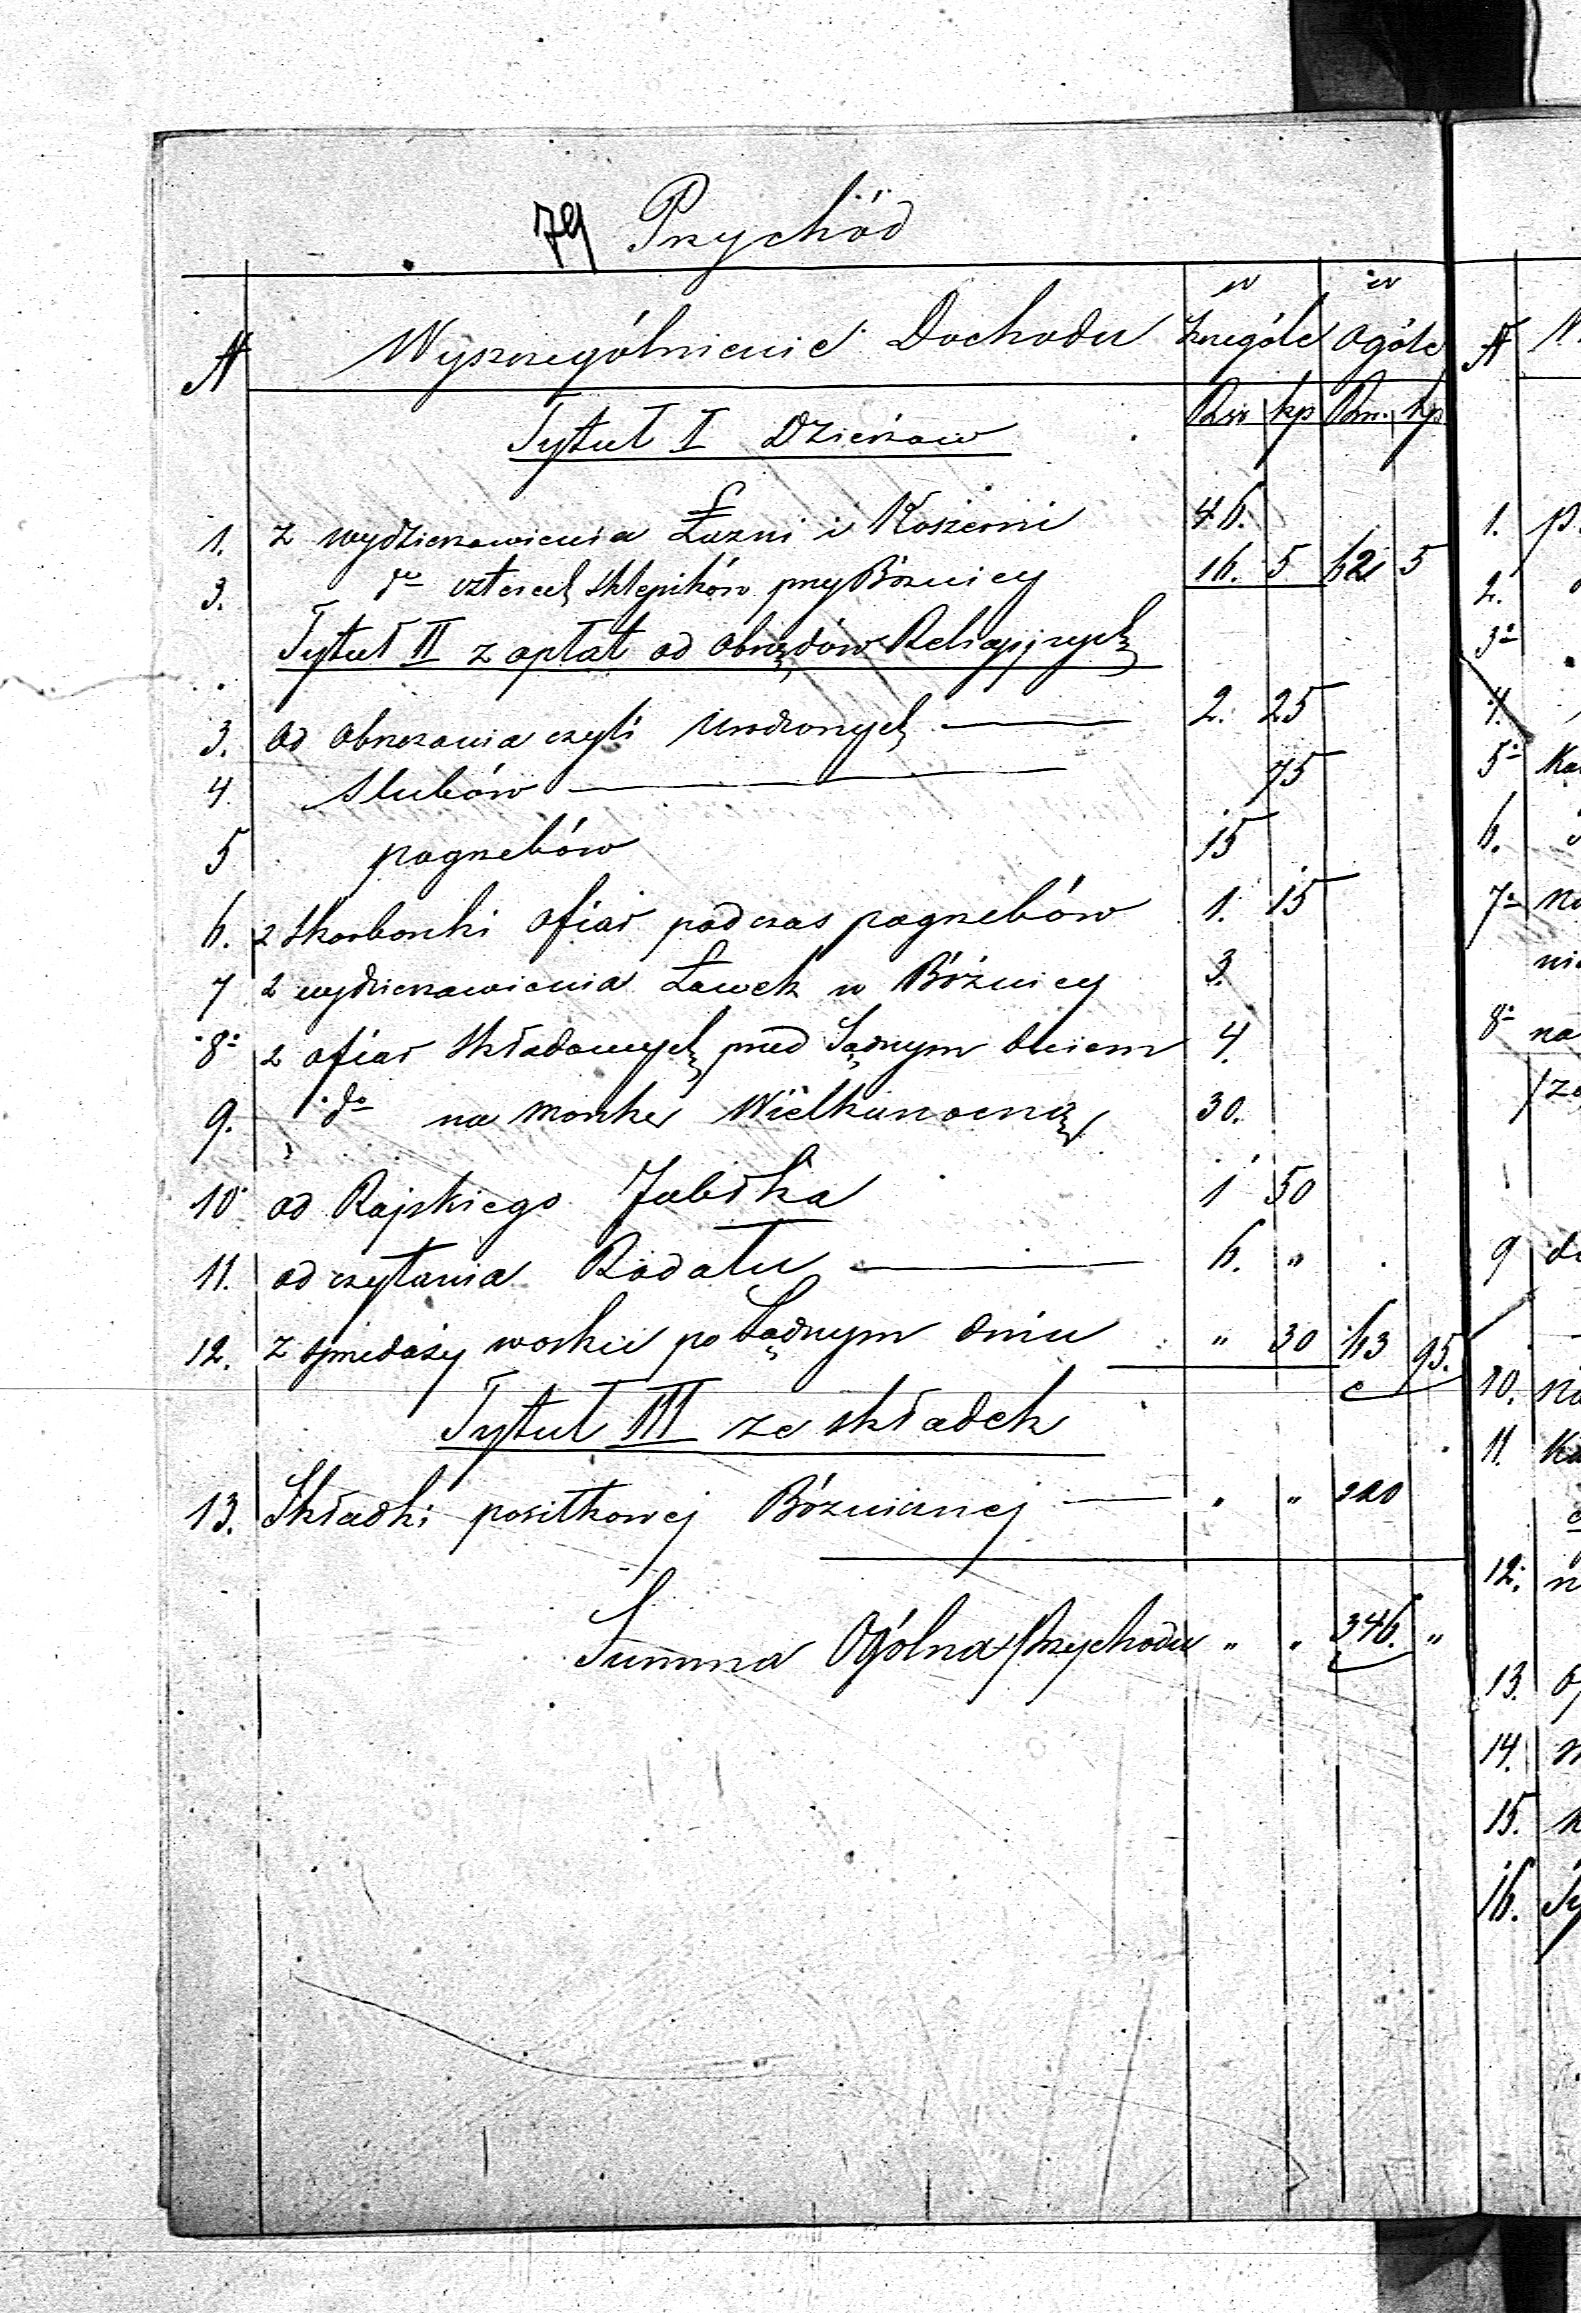 79 Przychód
w w
№ Wyszczególnienie Dochodu szczególe ogóle
Rsr kp Rsr. kp
Tytuł I Dzierzaw
1. z wydzierzawienia Łazni i Koszerni 46.
3. do czterech sklepików przy Bóznicy 16. 5 62 5
Tytuł II z opłat od obrzędów Religijnych
3. od obrzezania czyli urodzonych 2. 25
4. slubów 75
5 pogrzebów 15
6. z skarbonki ofiar podczas pogrzebów 1. 15
7 z wydzierzawienia Ławek w Bóżnicy 3.
8 z ofiar składanych przed Sądnym dniem 4.
9. do na monke Wielkanocną 30.
10 od Rajskiego Jabłka 1 50
11. od czytania Rodału 6. "
12. z spredaży wosku po Sądnym dniu " 30 63 95.
Tytuł III ze składek
13. Składki posiłkowej Bóznicznej " " 220
Summa Ogólna Przychodu " " 346. "
№
1. p
2.
3
4.
5
6.
7 na
8 na
9
10. na
11.
12. n
13.
14.
15.
16.